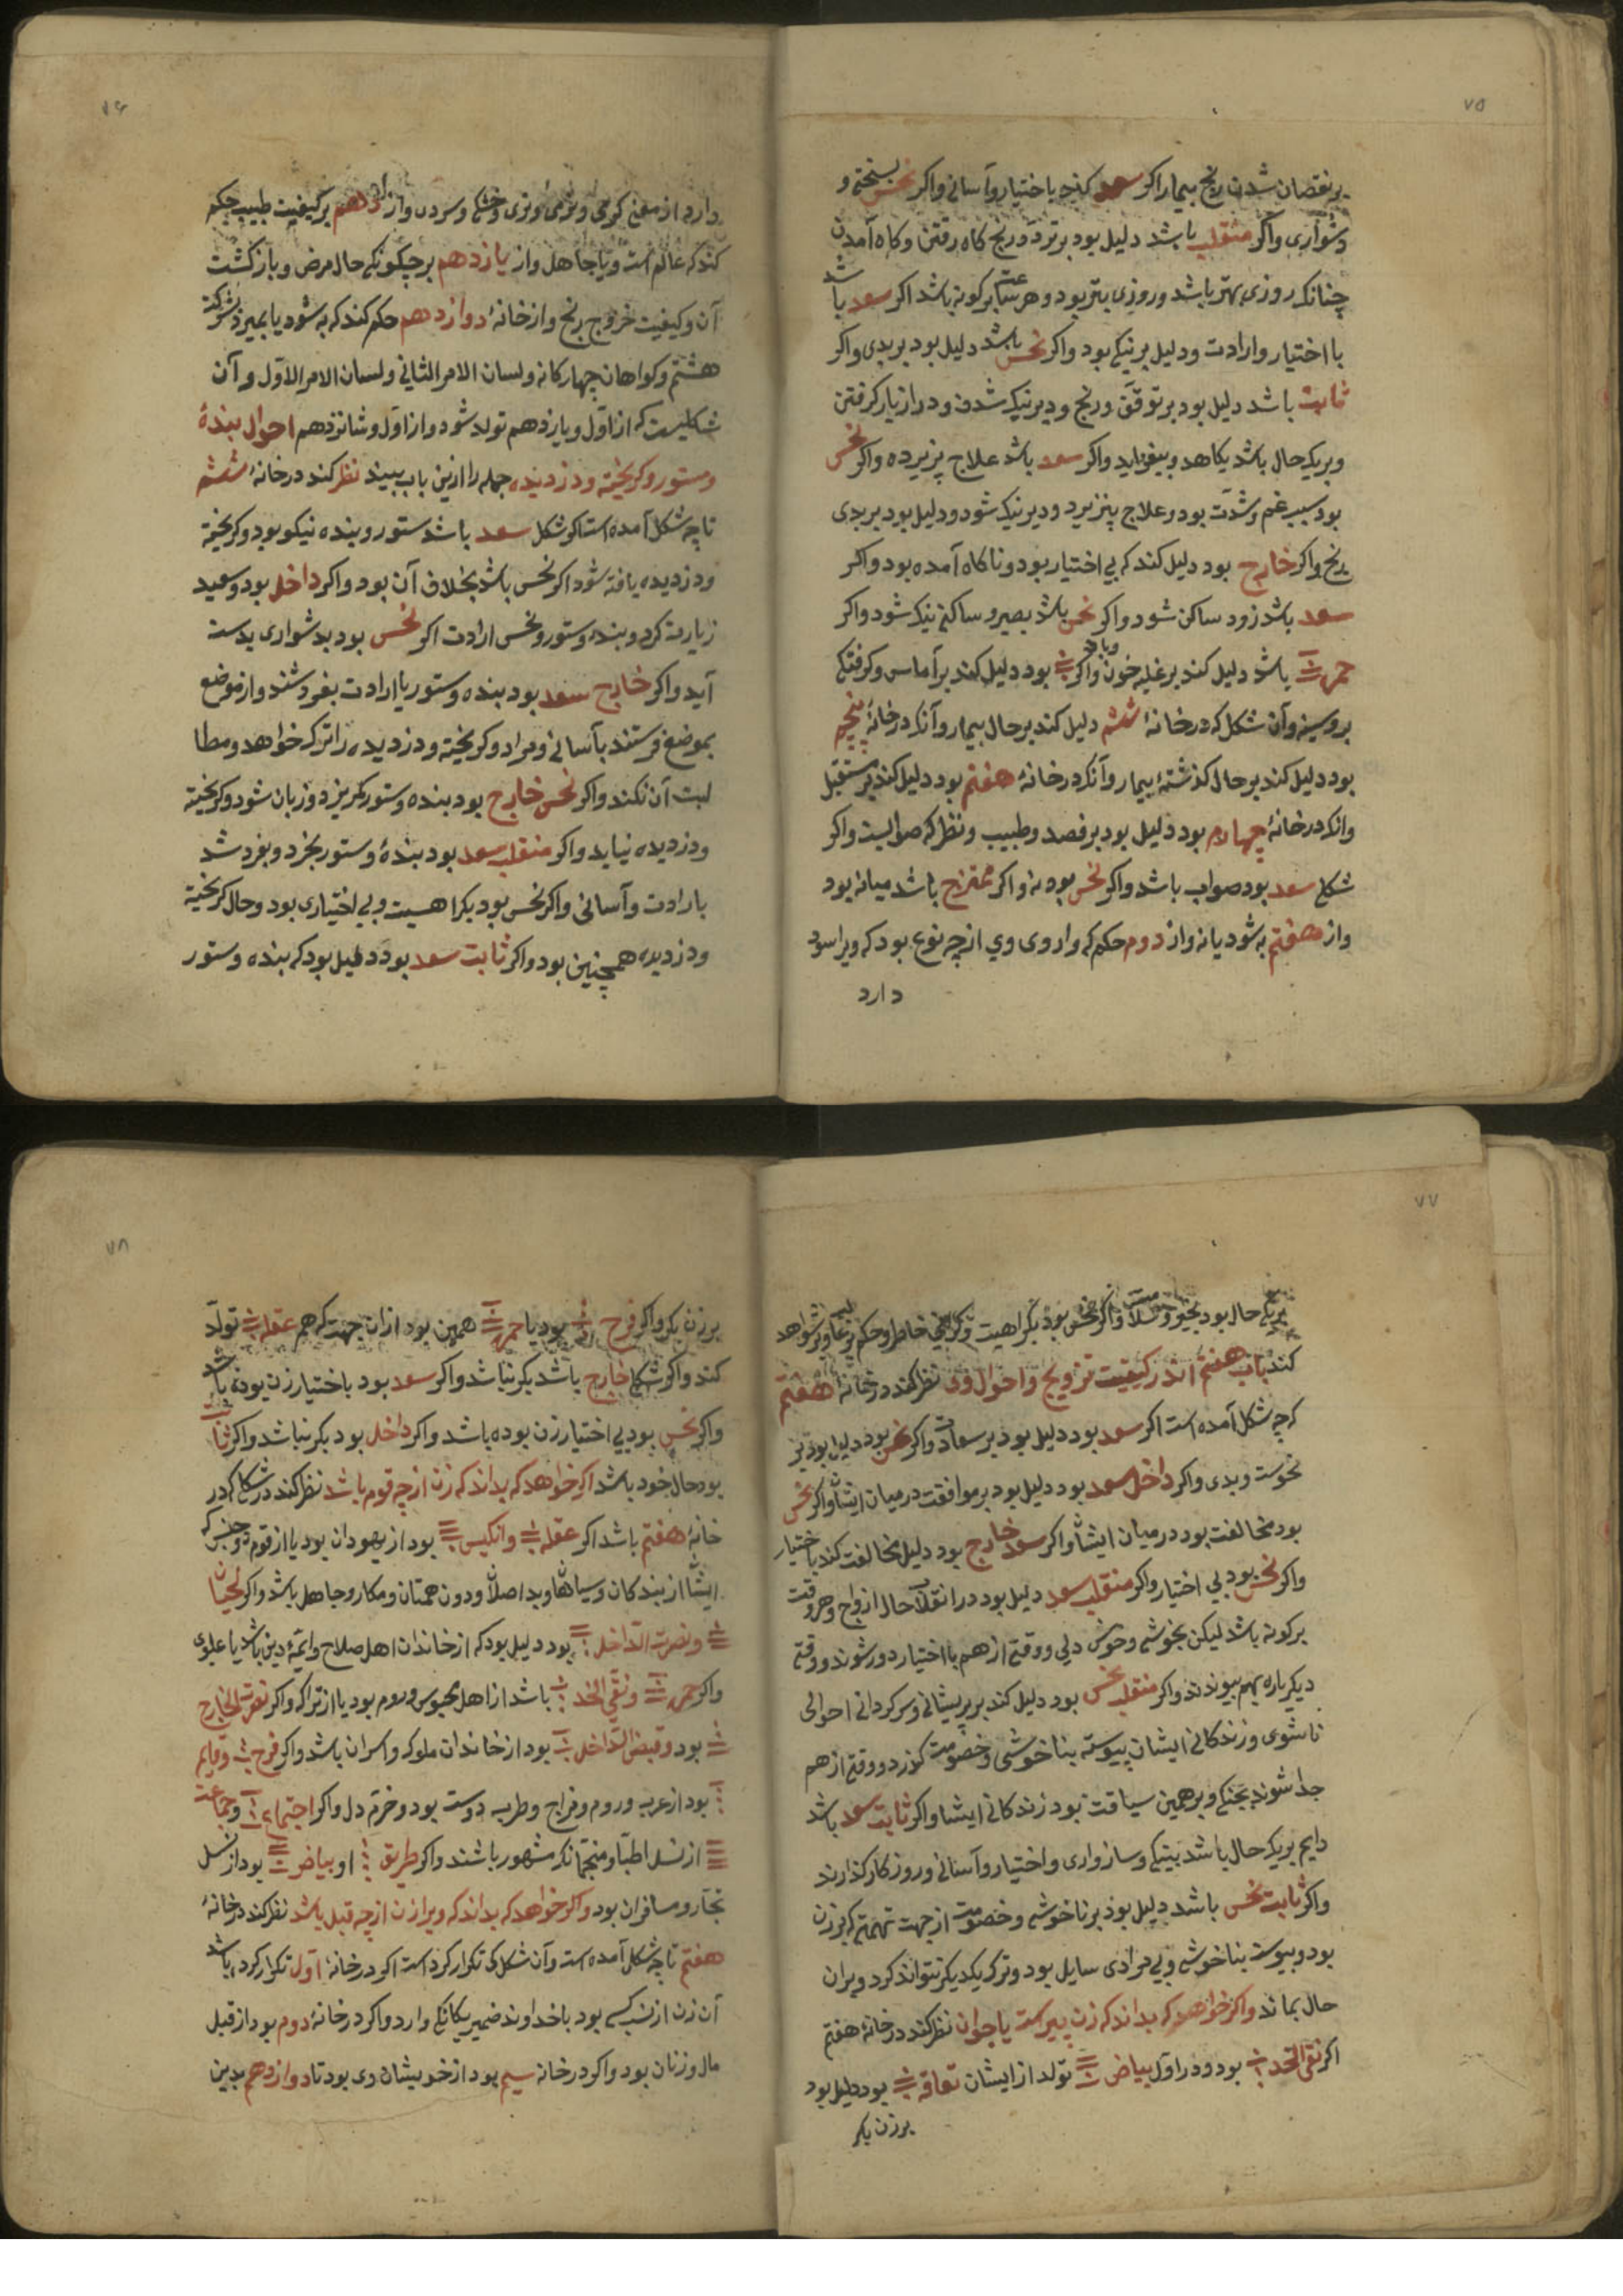 ۷۵
بر نقصان شدن رنج بیمار اکر سعد کند باختیار و آسانی و اکر نحس بسختی و
دشواری و اکر منقلب باشد دلیل بود بر تردد رنج کاه رفتن و کاه آمدن
چنانکه روزی بهتر باشد و روزی بتر بود و هر ساعت بر کونه باشد اکر سعد باشد
با اختیار و ارادت و دلیل بر نیکی بود و اکر نحس باشد دلیل بود بر بدی و اکر
ثابت باشد دلیل بود بر توقف و رنج و دیر نیک شدن و دراز یار کرفتن
و بر یک حال باشد بکاهد و بیفزاید و اکر سعد باشد علاج پزیرده و اکر نحس
بود سبب غم و شدت بود و علاج پنزیرد و دیر نیک شود و دلیل بود بر بدی
رنج و اکر خارج بود دلیل کند که بی اختیار بود و ناکاه آمده بود و اکر
سعد باشد زود ساکن شود و اکر نحس باشد بصبر و ساکنی نیک شود و اکر
حمره باشد دلیل کند بر غلبه خون و باد و اکر بود دلیل کند بر آماس و کرفتکی
بر و سینه و آن شکل که در خانهٔ ششم دلیل کند بر حال بیمار و آنکه در خانهٔ پنجم
بود دلیل کند بر حال کذشتهٔ بیمار و آنکه در خانهٔ هفتم بود دلیل کند بر مستقبل
وانکه در خانهٔ چهارم بود دلیل بود بر فصد و طبیب و نظر که صوابست و اکر
شکل سعد بود صواب باشد و اکر نحس بود نه و اکر ممتزج باشد میانه بود
و از هفتم به شود یا نه و از دوم حکم که داروی وی از چه نوع بود که ویرا سود
دارد
۷۶
دارد از معنی کرمی و نرمی و تری و خشکی و سردی و از دهم بر کیفیت طبیب حکم
کند که عالم است و یا جاهل و از یازدهم بر چکونکی حال مرض و بازکشت
آن و کیفیت خروج رنج و از خانهٔ دوازدهم حکم کند که به شود یا بمیرد بشرکت
هشتم و کواهان چهارکانه و لسان الامر الثانی و لسان الامر الاول و آن
شکلیست که از اول و یازدهم تولد شود و از اول و شانزدهم احوال بندهٔ
و ستور و کریخته و دزدیده جمله را ازین باب ببیند نظر کند در خانهٔ ششم
تا چه شکل آمده است اکر شکل سعد باشد ستور و بنده نیکو بود و کریخته
و دزدیده یافته شود اکر نحس باشد بخلاف آن بود و اکر داخل بود و سعید
زیارت کرد و بنده و ستور و نحس ارادت اکر نحس بود بدشواری بدست
آید و اکر خارج سعد بود بنده و ستور با ارادت بفروشند و از موضع
بموضع فرستند بآسانی و مراد و کریخته و دزدیده را ترک خواهد و مطا
لبت آن نکند و اکر نحس خارج بود بنده و ستور بکریزد و زیان شود و کریخته
و دزدیده نیاید و اکر منقلب سعد بود بندهٔ و ستور بخرد و بفروشد
بارادت و آسانی و اکر نحس بود بکراهیت و بی اختیاری بود و حال کریخته
و دزدیده همچنین بود و اکر ثابت سعد بود دلیل بود که بنده و ستور
۷۷
بریک حال بود بخیر و سلامت و اکر نحس بود بکراهیت و کرانی خاطر و حکم بر غالب و بر شواهد
کند باب هفتم اندر کیفیت تزویج و احوال وی نظر کند در خانهٔ هفتم
که چه شکل آمده است اکر سعد بود دلیل بود بر سعادت و اکر نحس بود دلیل بود بر
نحوست و بدی و اکر داخل سعد بود دلیل بود بر موافقت در میان ایشان و اکر نحس
بود مخالفت بود در میان ایشان و اکر سعد خارج بود دلیل مخالفت کند باختیار
و اکر نحس بود بی اختیار و اکر منقلب سعد دلیل بود در انقلاب حال ازواج و هر وقت
بر کونه باشد لیکن بخوشی و خوش دلی و وقتی از هم با اختیار دور شوند و وقتی
دیکرباره بهم پیوندند و اکر منقلب نحس بود دلیل کند بر پریشانی و سرکردانی احوالی
ناشوی و زندکانی ایشان پیوسته بناخوشی و خصومت کذرد و وقتی از هم
جدا شوند بجنکی و بر همین سیاقت بود زندکانی ایشان و اکر ثابت سعد باشد
دایم بریک حال باشد بنیکی و سازواری و اختیار و آسانی و روزکار کذارند
و اکر ثابت نحس باشد دلیل بود بر ناخوشی و خصومت از جهت تهمتی که بر زن
بود و پیوست بناخوشی و بی مرادی سایل بود و ترک یکدیکر نتواند کرد و بران
حال بماند و اکر خواهد که بداند که زن پیر است یا جوان نظر کند در خانهٔ هفتم
اکر نقی الخد بود و در اول بیاض تولد از ایشان بود دلیل بود
بر زن بکر
۷۸
بر زن بکر و اکر فرح بود یا حمره همین بود از ان جهت که هم عقله تولد
کند و اکر شکل خارج باشد بکر نباشد و اکر سعد بود باختیار زن بوده باشد
و اکر نحس بود بی اختیار زن بوده باشد و اکر داخل بود بکر نباشد و اکر ثابت
بود حال خود باشد اکر خواهد که بداند که زن از چه قوم باشد نظر کند در شکل که در
خانهٔ هفتم باشد اکر عقله و انکیس بود از یهودان بود یا از قوم
ایشان از بندکان و سیاهان و بد اصلان و دون همتان و مکار و جاهل باشد و اکر لحیان
و نصرت الداخل بود دلیل بود که از خاندان اهل صلاح و ایمهٔ دین باشد یا علوی
و اکر حمره و نقی الخد باشد از اهل مجوس و روم بود یا از تراک و اکر نصرت الخارج
بود و قبض الداخل بود از خاندان ملوک و امیران باشد و اکر فرح و
بود از عرب و روم و مزاج و طرب دوست بود و خرم دل و اکر اجتماع و جماعت
از نسل اطبا و منجمان که مشهور باشند و اکر طریق او بیاض بود از نسل
تجار و مسافران بود و اکر خواهد که بداند که ویرا زن از چه قبل باشد نظر کند در خانهٔ
هفتم تا چه شکل آمده است و آن شکل کی تکرار کرد است اکر در خانهٔ اول تکرار کرد باشد
آن زن از نسب کسی بود با خداوند ضمیر یکانکی دارد و اکر در خانهٔ دوم بود از قبل
مال و زنان بود و اکر در خانه سیم بود از خویشان وی بود تا دوازدهم بدین